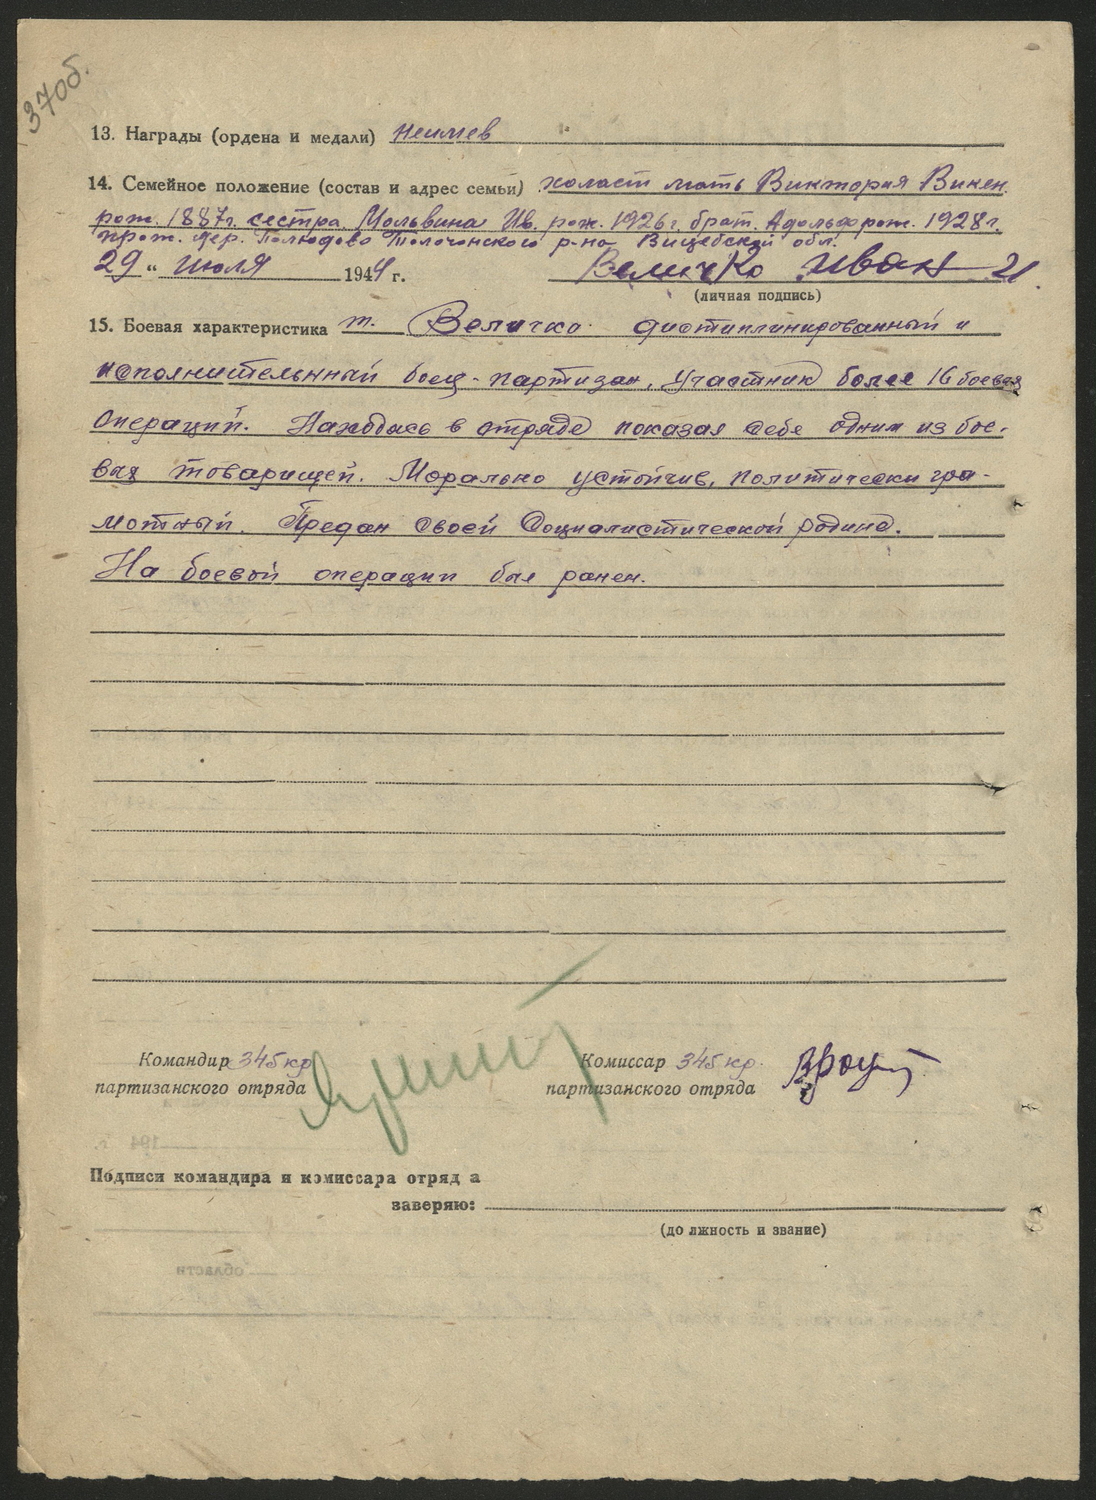 37об.
13. Награды (ордена и медали) неимев
14. Семейное положение (состав и адрес семьи) холост мать Виктория Викен.
рож. 1887г. сестра Мальвина Ив. рож. 1926г. брат. Адольф рож. 1928г.
прож. дер. Полюдово Толочинского р-на Вицебской обл.
29 " июля 1944 г. Величко Иван И.
(личная подпись)
15. Боевая характеристика т. Величко дистиплинированный и
исполнительнный боец-партизан, участник более 16 боевых
операций. Находясь в отряде показал себе одним из бое-
вых товарищей. Морально устойчив, политически гра-
мотный. Предан своей социалистической родине.
На боевой операции был ранен.
Командир 345 кр Комиссар 345 кр.
партизанского отряда партизанского отряда
Подписи командира и комиссара отряд а
заверяю:
(до лжность и звание)